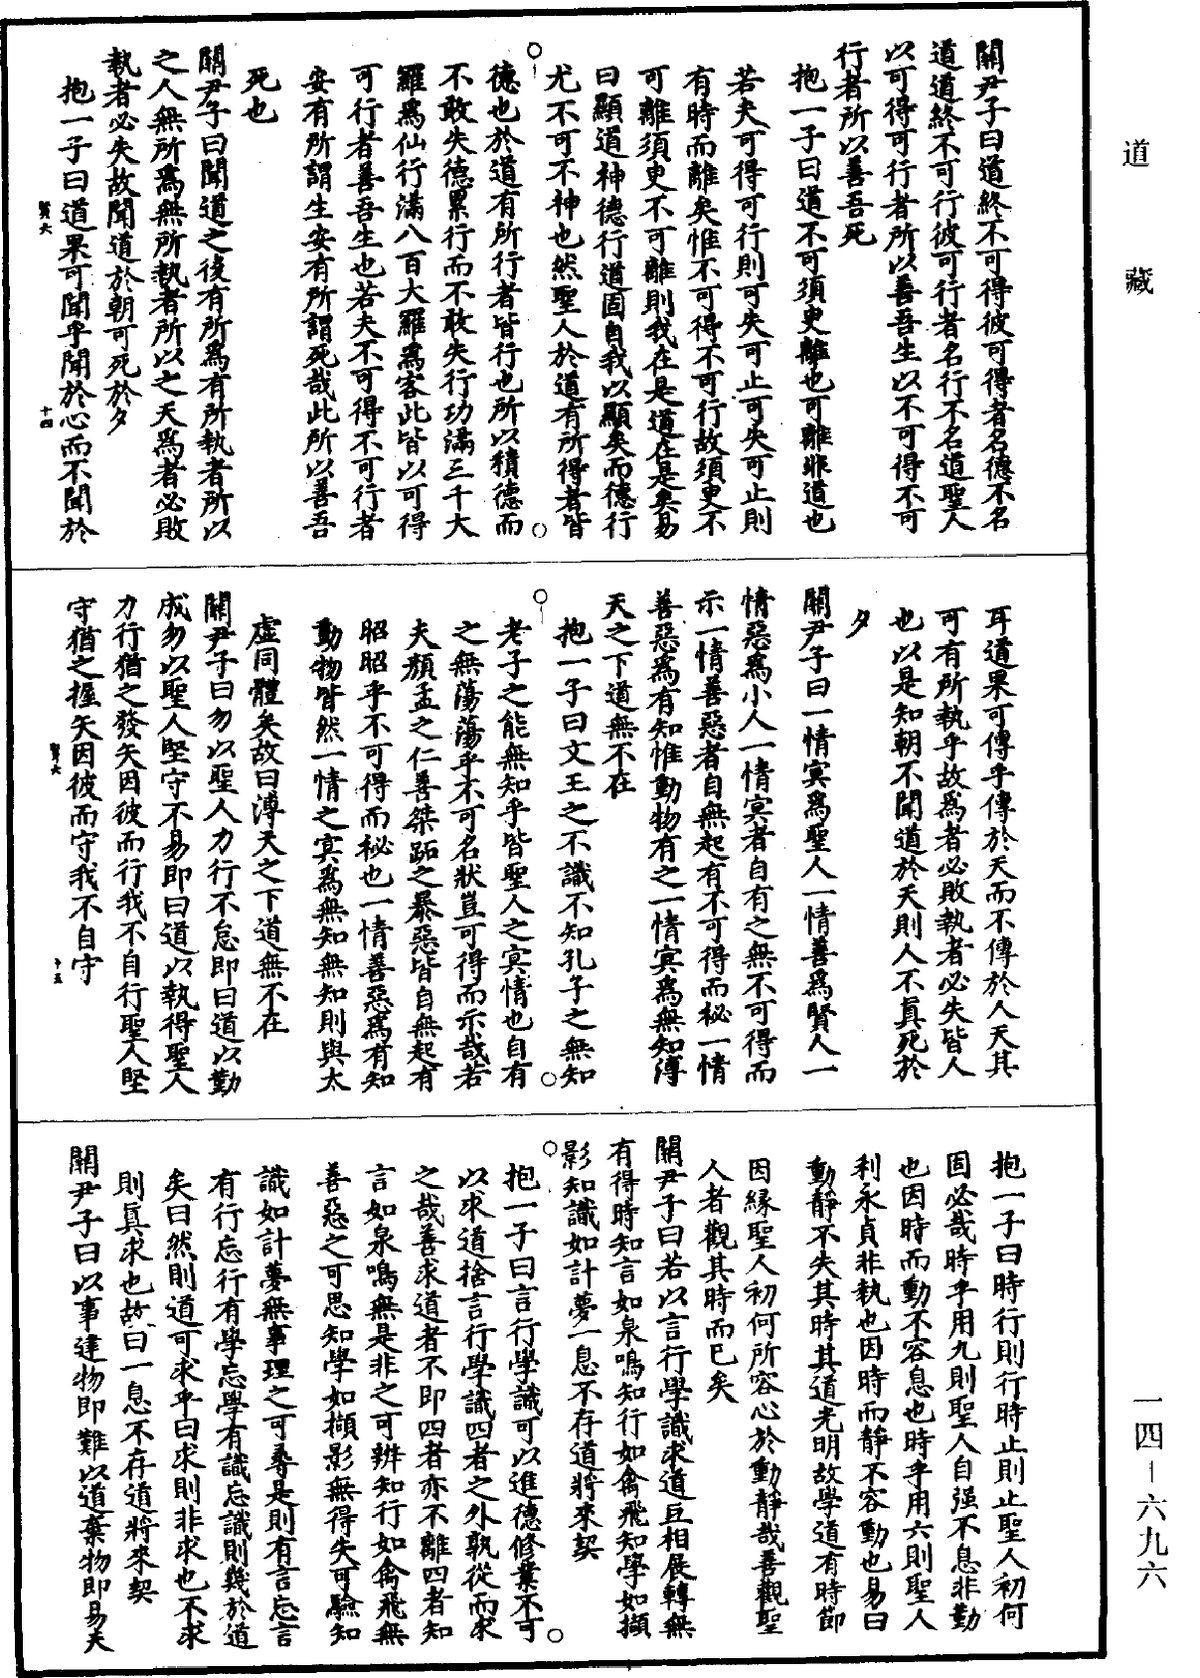 道藏
關尹子曰道終不可得彼可得者名德不名
道道終不可行彼可行者名行不名道聖人
以可得可行者所以善吾生以不可得不可
行者所以善吾死
抱一子曰道不可須臾離也可離非道也
若夫可得可行則可失可止可失可止則
有時而離矣惟不可得不可行故須臾不
可離須臾不可離則我在是道在是矣易
曰顯道神德行道固自我以顯矣而德行
尤不可不神也然聖人於道有所得者皆
德也於道有所行者皆行也所以積德而
不敢失德累行而不敢失行功滿三千大
羅爲仙行滿八百大羅爲客此皆以可得
可行者善吾生也若夫不可得不可行者
安有所謂生安有所謂死哉此所以善吾
死也
關尹子曰聞道之後有所爲有所執者所以
之人無所爲無所執者所以之天爲者必敗
執者必失故聞道於朝可死於夕
抱一子曰道果可聞乎聞於心而不聞於
賢六
十四
耳道果可傳乎傳於天而不傳於人天其
可有所執乎故爲者必敗執者必失皆人
也以是知朝不聞道於天則人不真死於
夕
關尹子曰一情冥爲聖人一情善爲賢人一
情惡爲小人一情冥者自有之無不可得而
示一情善惡者自無起有不可得而秘一情
善惡爲有知惟動物有之一情冥爲無知溥
天之下道無不在
抱一子曰文王之不識不知孔子之無知
老子之能無知乎皆聖人之冥情也自有
之無蕩蕩乎不可名狀豈可得而示哉若
夫顏孟之仁善桀跖之暴惡皆自無起有
昭昭乎不可得而秘也一情善惡爲有知
動物皆然一情之冥爲無知無知則與太
虛同體矣故曰溥天之下道無不在
關尹子曰勿以聖人力行不怠即曰道以勤
成勿以聖人堅守不易即曰道以執得聖人
力行猶之發矢因彼而行我不自行聖人堅
守猶之握矢因彼而守我不自守
賢六
十五
抱一子曰時行則行時止則止聖人初何
固必哉時乎用九則聖人自强不息非勤
也因時而動不容息也時乎用六則聖人
利永貞非執也因時而靜不容動也易曰
動靜不失其時其道光明故學道有時節
因緣聖人初何所容心於動靜哉善觀聖
人者觀其時而已矣
關尹子曰若以言行學識求道互相展轉無
有得時知言如泉鳴知行如禽飛知學如擷
影知識如計夢一息不存道將來契
抱一子曰言行學識可以進德修業不可
以求道捨言行學識四者之外孰從而求
之哉善求道者不即四者亦不離四者知
言如泉鳴無是非之可辨知行如禽飛無
善惡之可思知學如擷影無得失可驗知
識如計夢無事理之可尋是則有言忘言
有行忘行有學忘學有識忘識則幾於道
矣曰然則道可求乎曰求則非求也不求
則真求也故曰一息不存道將來契
關尹子曰以事建物即難以道棄物即易天
一四-六九六